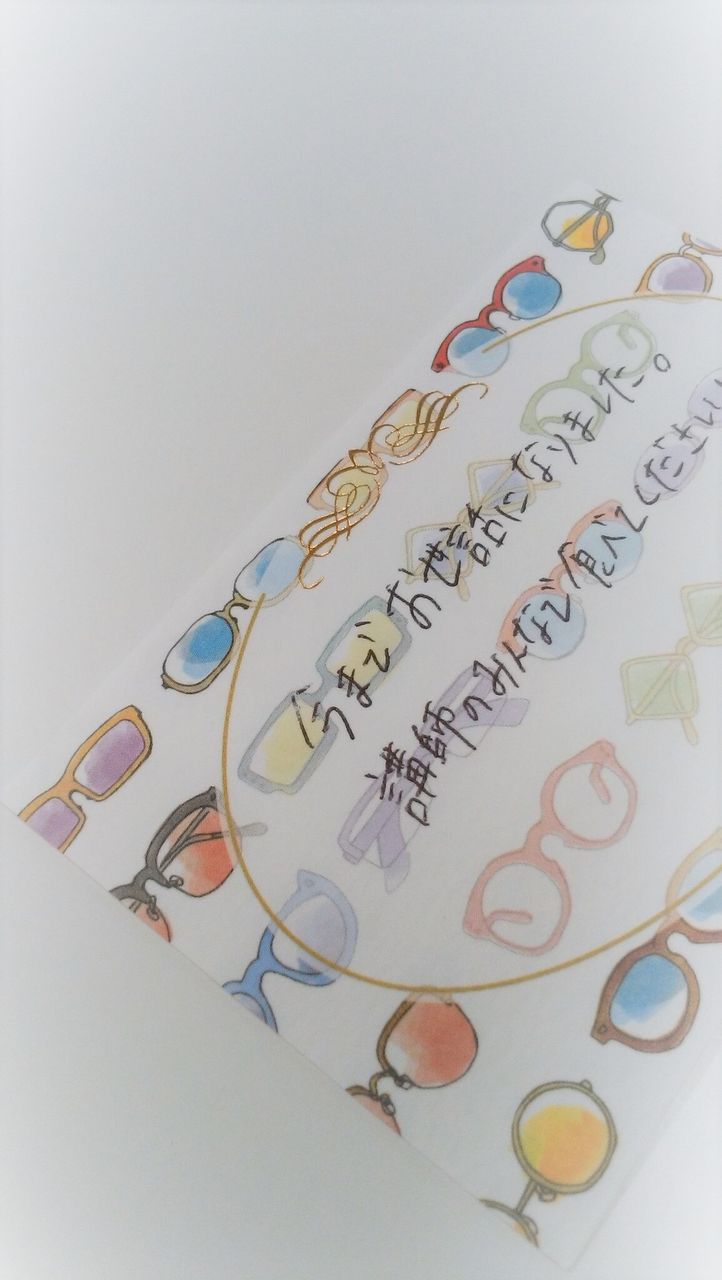 今までお世話になりました。
講師のみんなで食べてください